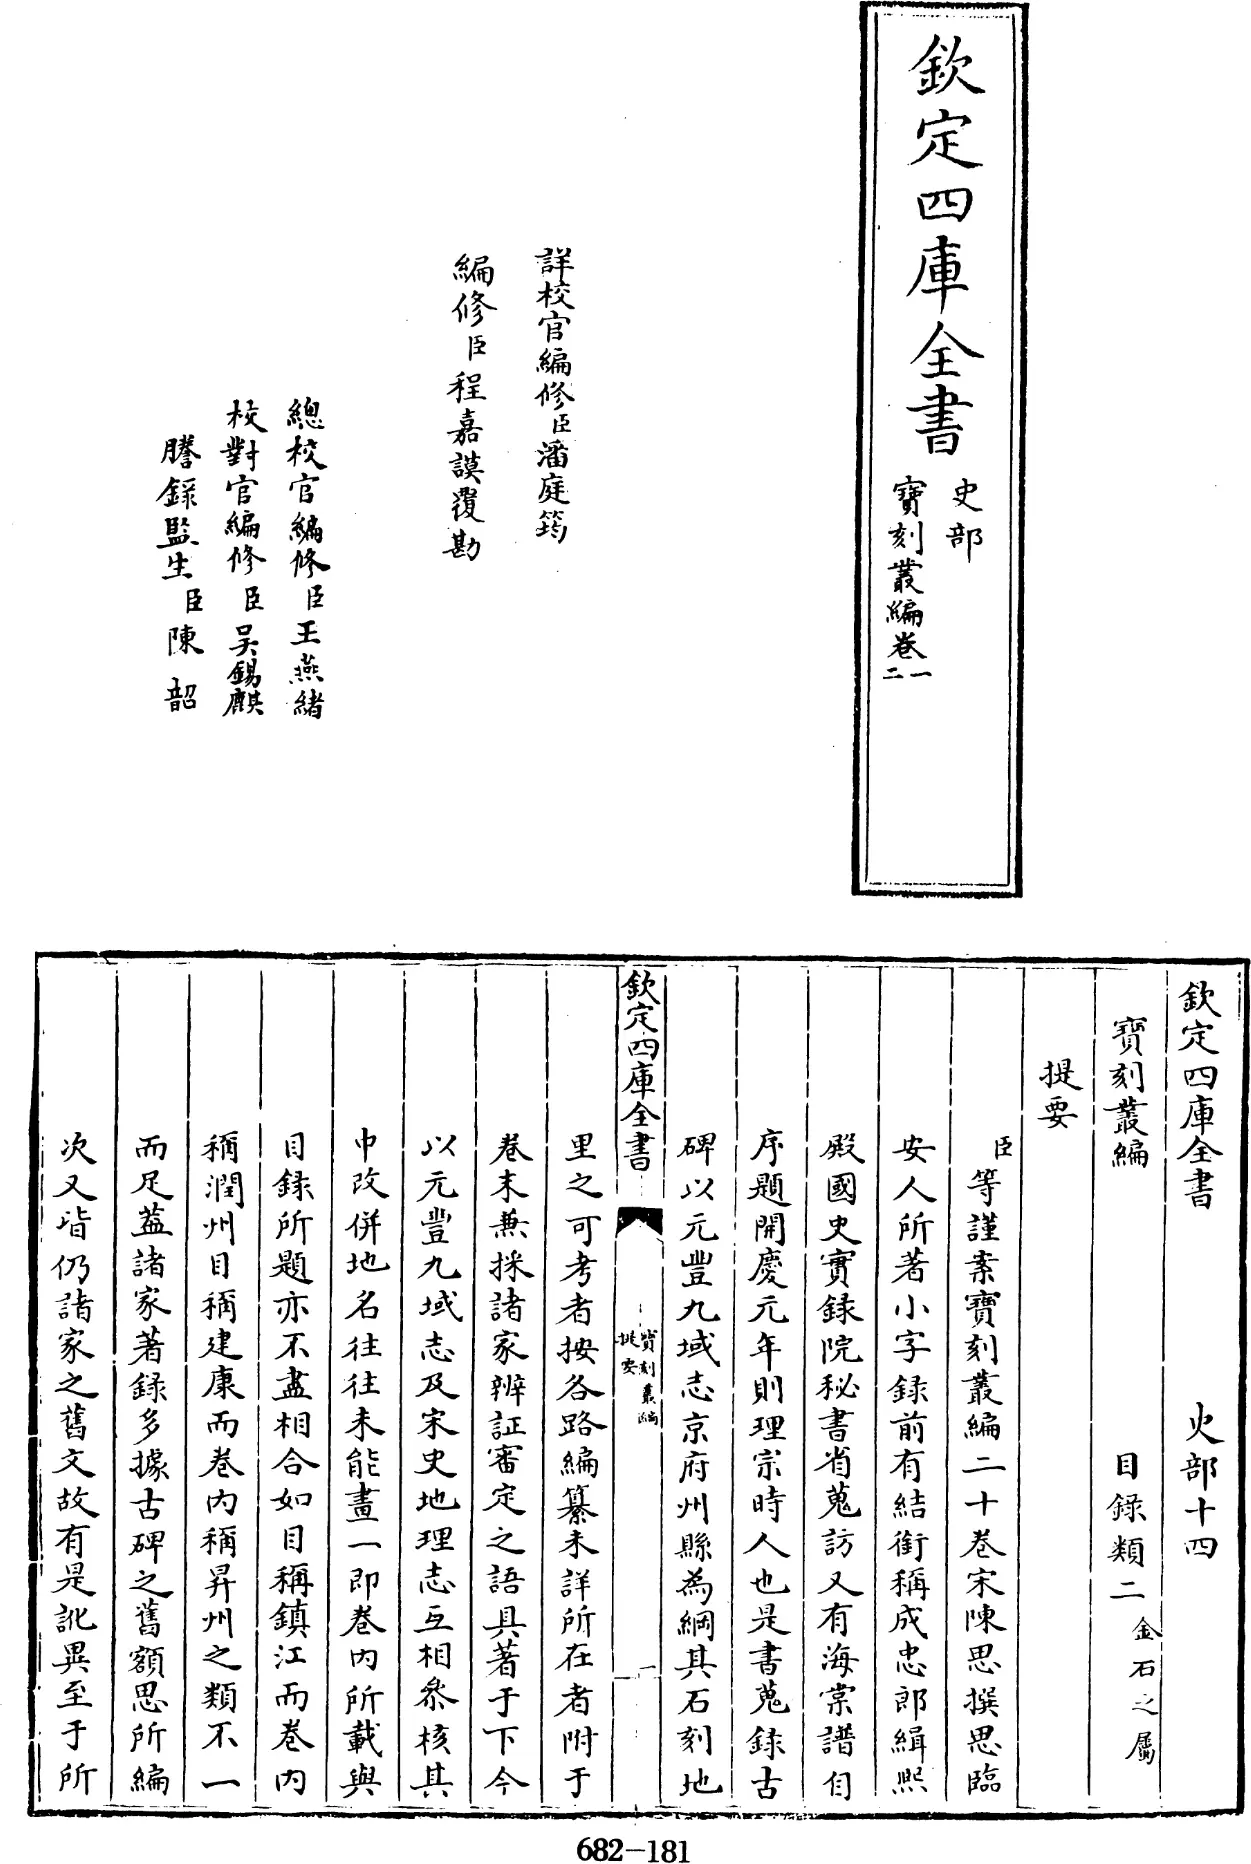 欽定四庫全書
史部
寶刻叢編卷一
二
詳校官編修臣潘庭筠
編修臣程嘉謨覆勘
總校官編修臣王燕緒
校對官編修臣吳錫麒
謄錄監生臣陳韶
欽定四庫全書 史部十四
寶刻叢編 目錄類二金石之屬
提要
臣等謹案寶刻叢編二十卷宋陳思撰思臨
安人所著小字錄前有結銜稱成忠郎緝熙
殿國史實録院秘書省蒐訪又有海棠譜自
序題開慶元年則理宗時人也是書蒐錄古
碑以元豐九域志京府州縣為綱其石刻地
欽定四庫全書
寶刻叢編
提要
一
里之可考者按各路編纂未詳所在者附于
卷末兼採諸家辨証審定之語具著于下今
以元豐九域志及宋史地理志互相叅核其
中改併地名往往未能畫一即卷内所載與
目錄所題亦不盡相合如目稱鎮江而卷内
稱潤州目稱建康而卷内稱昇州之類不一
而足蓋諸家著錄多據古碑之舊額思所編
次又皆仍諸家之舊文故有是訛異至于所
682-181